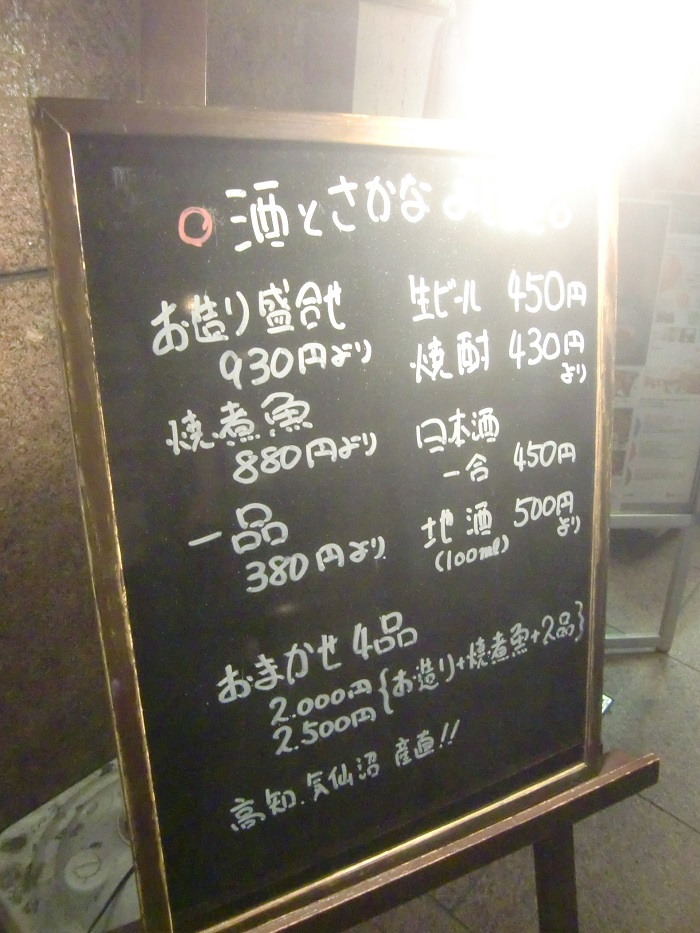 酒とさかな
お造り盛合せ
930円より
焼煮魚
880円より
一品
380円より
生ビール 450円
焼酎 430円
より
日本酒
一合 450円
地酒 500円
(100ml) より
おまかせ 4品
2.000円
2.500円
{お造り+焼煮魚+2品}
高知.気仙沼 産直!!